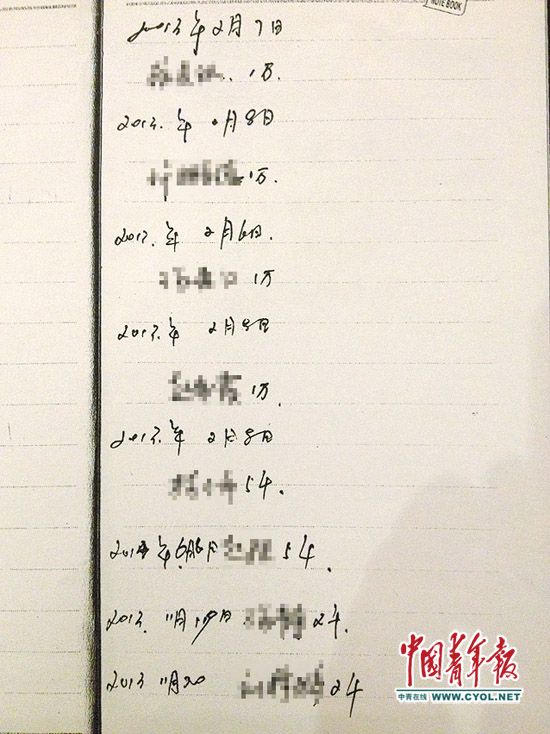 NOTE BOOK
2013年2月7日
1万.
2013.年2月8日
1万.
2013.年 2月6日.
1万
2013.年 2月8日
1万.
2013.年 2月8日
5千.
5千.
2013. 11月19日 2千.
2013 11月20 2千
中国青年报
中青在线 WWW.CYOL.NET